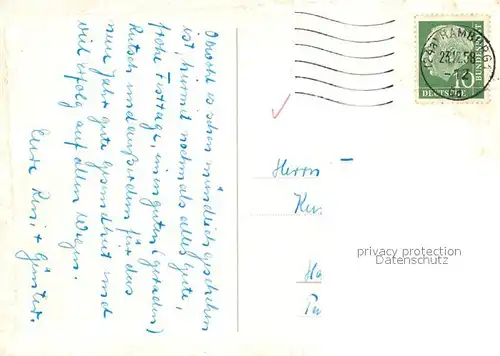 Obwohl es schon mündlich geschehen
ist, hiermit nochmals alles Gute,
frohe Festtage, einen guten (geraden)
Rutsch und außerdem für das
neue Jahr gute Gesundheit und
viel Erfolg auf allen Wegen.
Eure Resi + Günter.
HAMBURG
23.12.58
10
BUNDESPOST
DEUTSCHE
Herrn
privacy protection
Datenschutz